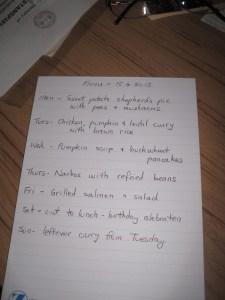 Menu - 15
Mon - Sweet potato shepherd's pie
with peas & mushrooms
Tues- Chicken, pumpkin & lentil curry
with brown rice
Wed - Pumpkin soup & buckwheat
pancakes
Thurs- Nachos with refried beans
Fri - Grilled salmon & salad
Sat - out to lunch - birthday celebration
Sun- leftover curry from Tuesday